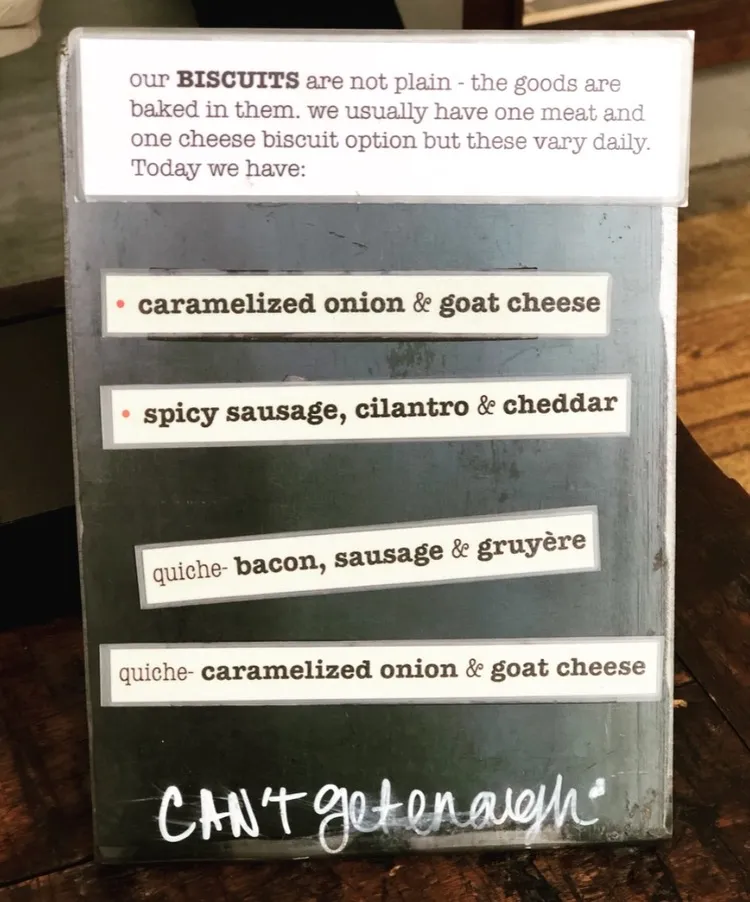 our BISCUITS are not plain - the goods are
baked in them. we usually have one meat and
one cheese biscuit option but these vary daily.
Today we have:
• caramelized onion & goat cheese
• spicy sausage, cilantro & cheddar
quiche- bacon, sausage & gruyère
quiche- caramelized onion & goat cheese
CAN't get enough